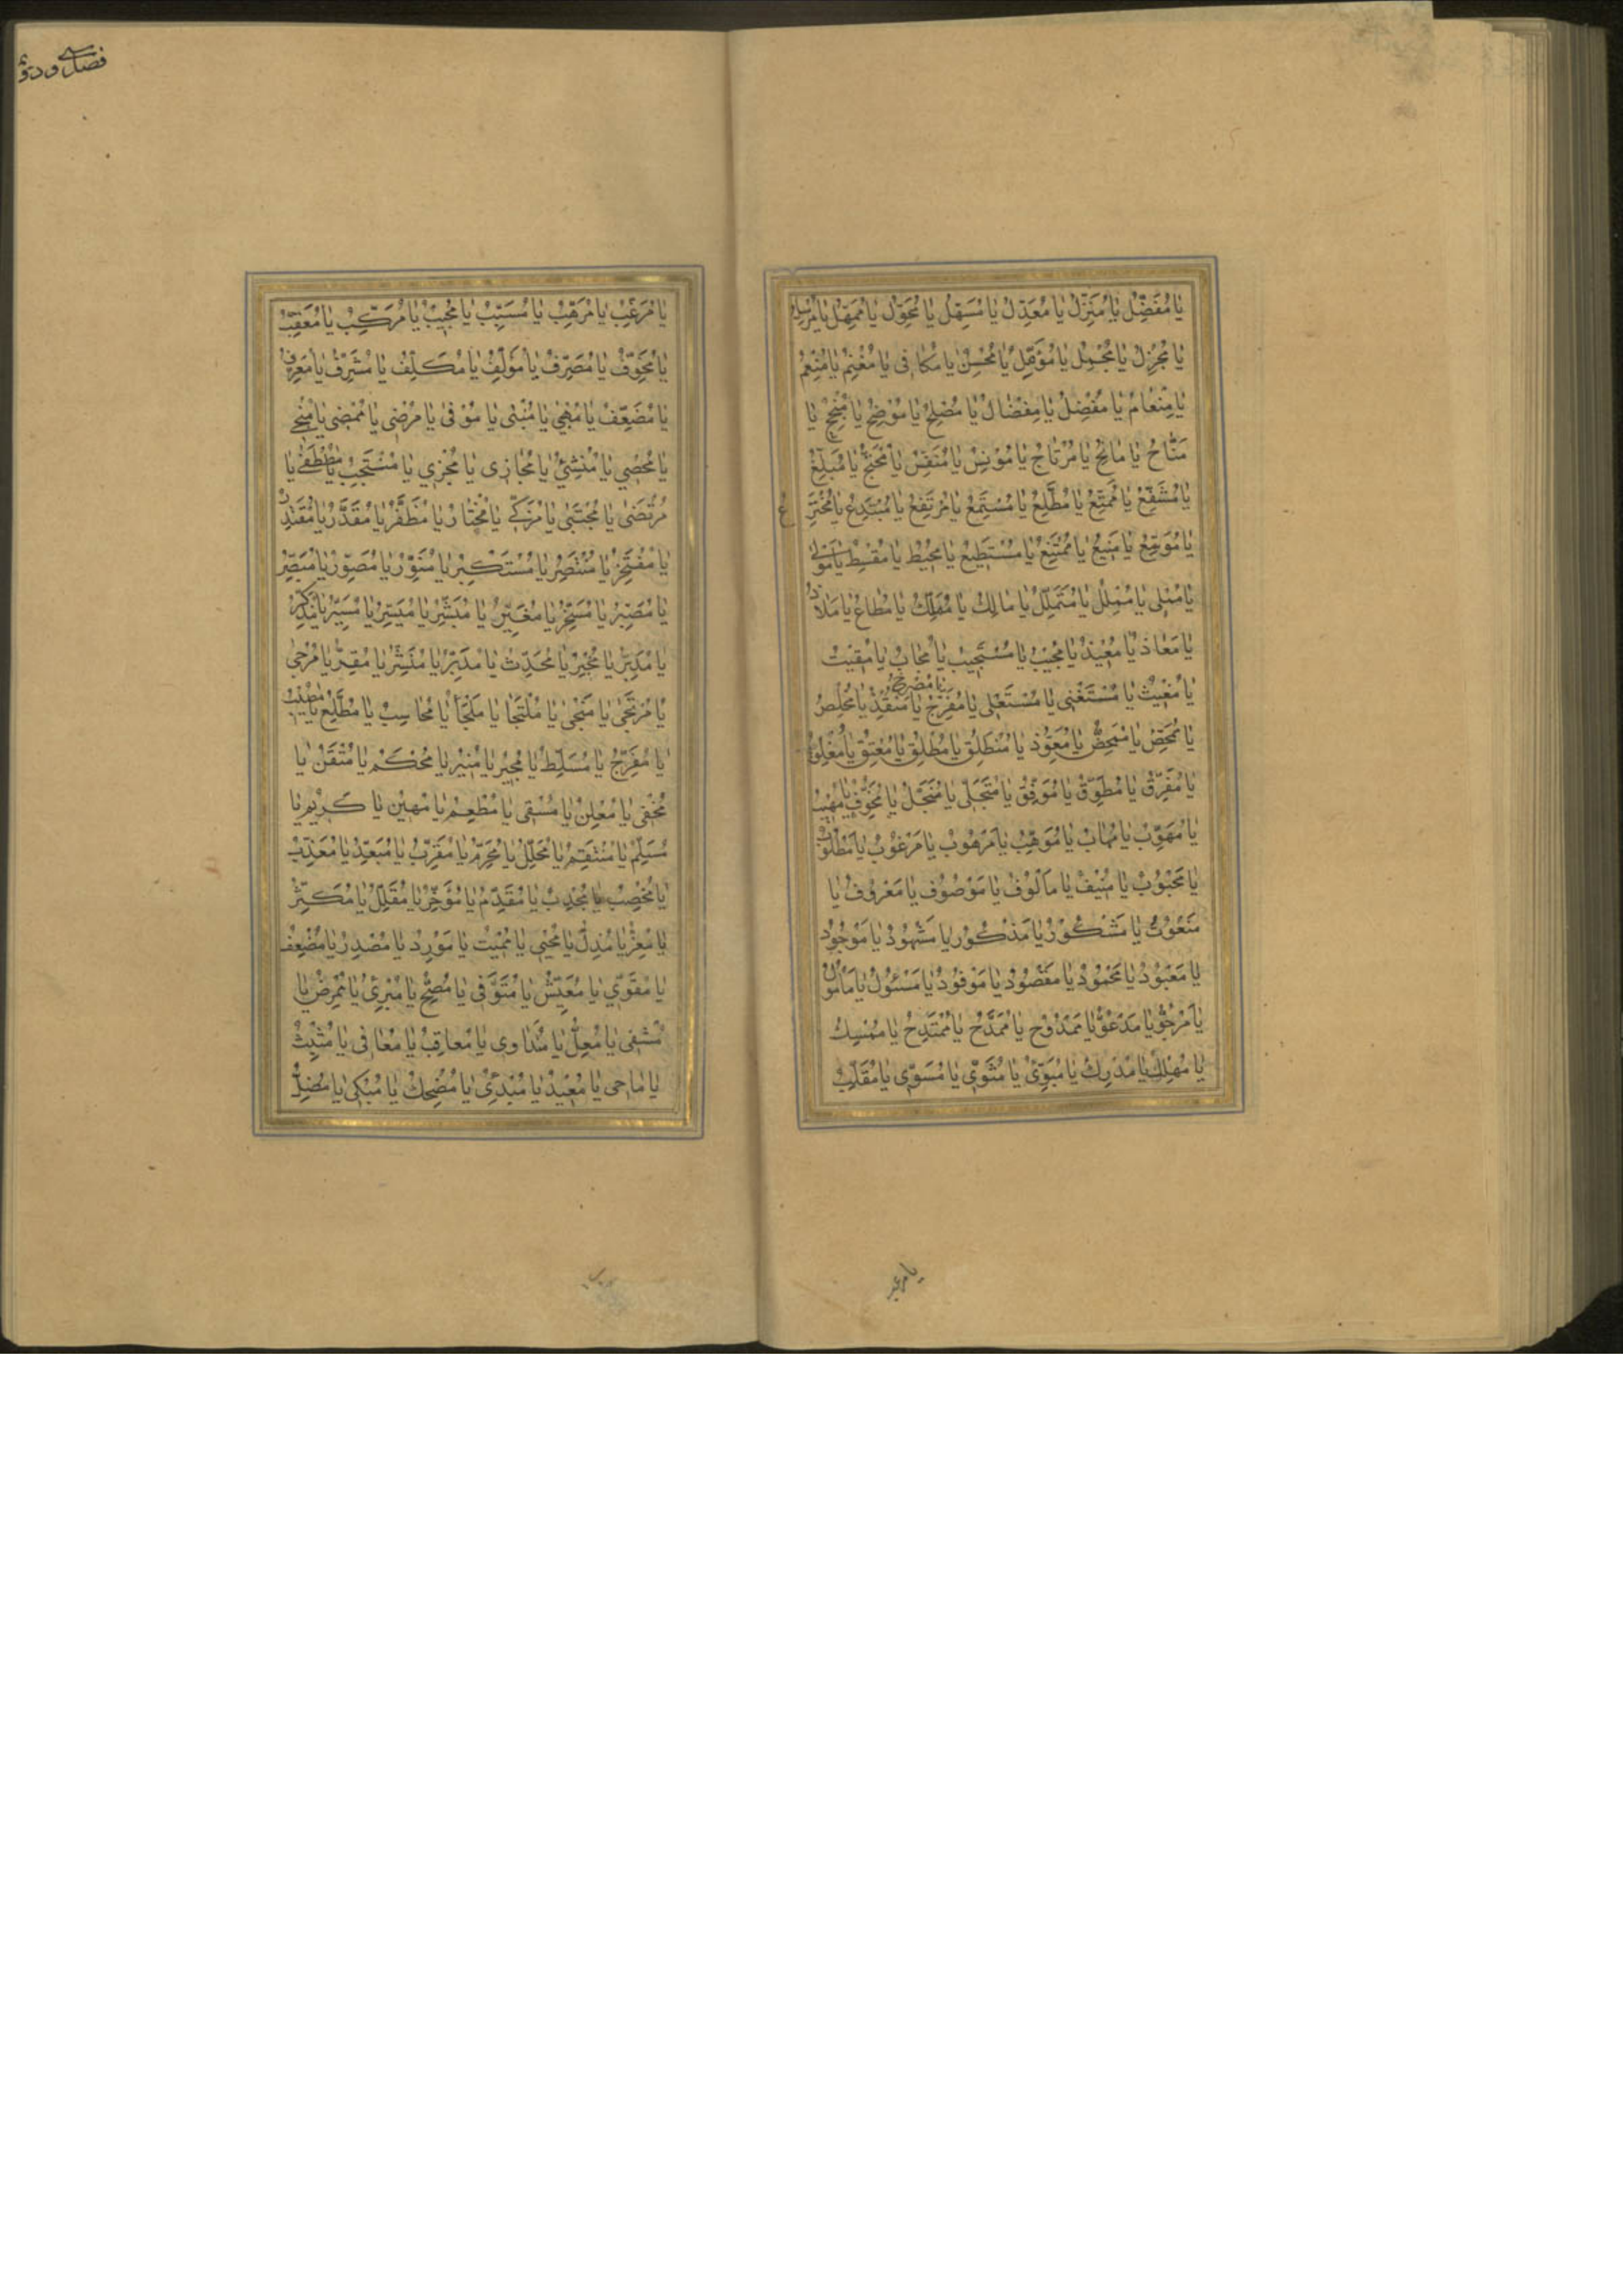 يا مُفَضِّلُ يا مُنَزِّلُ يا مُعَدِّلُ يا مُسَهِّلُ يا مُحَوِّلُ يا مُمَهِّلُ يا مُرْسِلُ
يا مُجْزِلُ يا مُجْمِلُ يا يا مُحْسِنُ يا مُكافِى يا يا مُنْعِمُ
يا مِنْعامُ يا مُفْضِلُ يا مِفْضالُ يا مُصْلِحُ يا مُوْضِحُ يا مُنْجِحُ يا
مَنّاحُ يا مانِحُ يا مُرْتاحُ يا مُوْنِسُ يا مُنَفِّسُ يا مُحْتَجُّ يا مُبَلِّغُ
يا مُشَفِّعُ يا مُمَتِّعُ يا مُطَّلِعُ يا مُسْتَمِعُ يا مُرْتَفِعُ يا مُبْتَدِعُ يا مُخْتَرِعُ
يا مُوَسِّعُ يا مَنِيْعُ يا مُمْتَنِعُ يا مُسْتَطِيعُ يا مُحِيْطُ يا مُقْسِطُ يا مَوْلى
يا مُبْلِى يا يا يا مالِكُ يا مُمَلِّكُ يا مُطاعُ يا مَلاذُ
يا مَعاذُ يا مُعِيْذُ يا مُجِيْبُ يا مُسْتَجِيْبُ يا مُجابُ يا مُقِيْتُ
يا مُصْرِخُ
يا مُغِيْثُ يا مُسْتَغْنِى يا مُسْتَعْلِى يا مُفَرِّجُ يا مُنْقِذُ يا مُخَلِّصُ
يا مُمَحِّصُ يا يا مُعَوِّذُ يا مُنْطَلِقُ يا مُطْلِقُ يا مُعْتِقُ يا مُغْلِقُ
يا مُفَرِّقُ يا مُطَوِّقُ يا مُوَفِّقُ يا مُتَجَلّى يا يا مُخَوِّفُ يا مُهِيْبُ
يا يا مُهابُ يا يا مَرْهُوْبُ يا مَرْغُوْبُ يا مَطْلُوْبُ
يا مَحْبُوْبُ يا مُنِيْفُ يا مَأْلُوْفُ يا مَوْصُوْفُ يا مَعْرُوْفُ يا
مَنْعُوْتُ يا مَشْكُوْرُ يا مَذْكُوْرُ يا مَشْهُوْدُ يا مَوْجُوْدُ
يا مَعْبُوْدُ يا مَحْمُوْدُ يا مَقْصُوْدُ يا مَوْفُوْدُ يا مَسْئُولُ يا مَأْمُوْلُ
يا مَرْجُوُّ يا مَدْعُوُّ يا مَمْدُوْحُ يا مُمَدَّحُ يا مُمْتَدِحُ يا مُمْسِكُ
يا مُهْلِكُ يا مُدْرِكُ يا مُبَوِّئُ يا مُثَوِّى يا مُسَوِّى يا مُقَلِّبُ
يا مرغب
فصل سی و دوم
يا مُرَغِّبُ يا مُرَهِّبُ يا مُسَبِّبُ يا مُجِيْبُ يا مُرَكِّبُ يا مُعَقِّبُ
يا مُخَوِّفُ يا مُصَرِّفُ يا مُؤَلِّفُ يا مُكَلِّفُ يا مُشَرِّفُ يا مُعَرِّفُ
يا مُضَعِّفُ يا يا يا مُوْفى يا مُرْضِى يا مُمْضِى يا مُنْجِى
يا مُحْصِي يا مُنْشِئُ يا مُجازِى يا مُجْزِي يا مُنْتَجِبُ يا مُصْطَفى يا
مُرْتَضى يا مُجْتَبى يا مُزَكّى يا مُخْتارُ يا مُظَفِّرُ يا مُقَدِّرُ يا مُقْتَدِرُ
يا مُفْتَخِرُ يا مُنْتَصِرُ يا مُسْتَكْبِرُ يا مُنَوِّرُ يا مُصَوِّرُ يا مُبَصِّرُ
يا مُصَبِّرُ يا مُسَخِّرُ يا مُغَيِّرُ يا مُبَشِّرُ يا مُيَسِّرُ يا مُسَيِّرُ يا مُذَكِّرُ
يا يا مُخْبِرُ يا مُحَدِّثُ يا مُدَبِّرُ يا مُنَشِّرُ يا مُقِرُّ يا مُرْجى
يا مُرْتَجى يا مَنْجى يا مُلْتَجا يا مَلْجَأُ يا مُحاسِبُ يا مُطَّلِعُ يا مُطْلِبُ
يا مُفَرِّجُ يا مُسَلِّطُ يا مُجِيْرُ يا مُنِيْرُ يا مُحْكِمُ يا مُتْقِنُ يا
مُخْفِى يا مُعْلِنُ يا مُسْقِى يا مُطْعِمُ يا مُهِيْنُ يا كَرِيْمُ يا
مُسَلِّمُ يا مُنْتَقِمُ يا مُحَلِّلُ يا مُحَرِّمُ يا مُقَرِّبُ يا مُبَعِّدُ يا مُعَذِّبُ
يا مُخْصِبُ يا مُجْدِبُ يا مُقَدِّمُ يا مُؤَخِّرُ يا مُقَلِّلُ يا مُكَثِّرُ
يا مُعِزُّ يا مُذِلُّ يا مُحْيِى يا مُمِيْتُ يا مُوْرِدُ يا مُصْدِرُ يا مُضْعِفُ
يا مُقَوِّي يا مُعَيِّشُ يا مُتَوَفِّى يا مُصِحُّ يا مُبْرِئُ يا مُمْرِضُ يا
مُشْفِى يا مُعِلُّ يا مُداوِى يا مُعاقِبُ يا مُعافِى يا مُثَبِّتُ
يا ماحِى يا مُعِيْدُ يا مُبْدِئُ يا مُضْحِكُ يا مُبْكِى يا مُضِلُّ